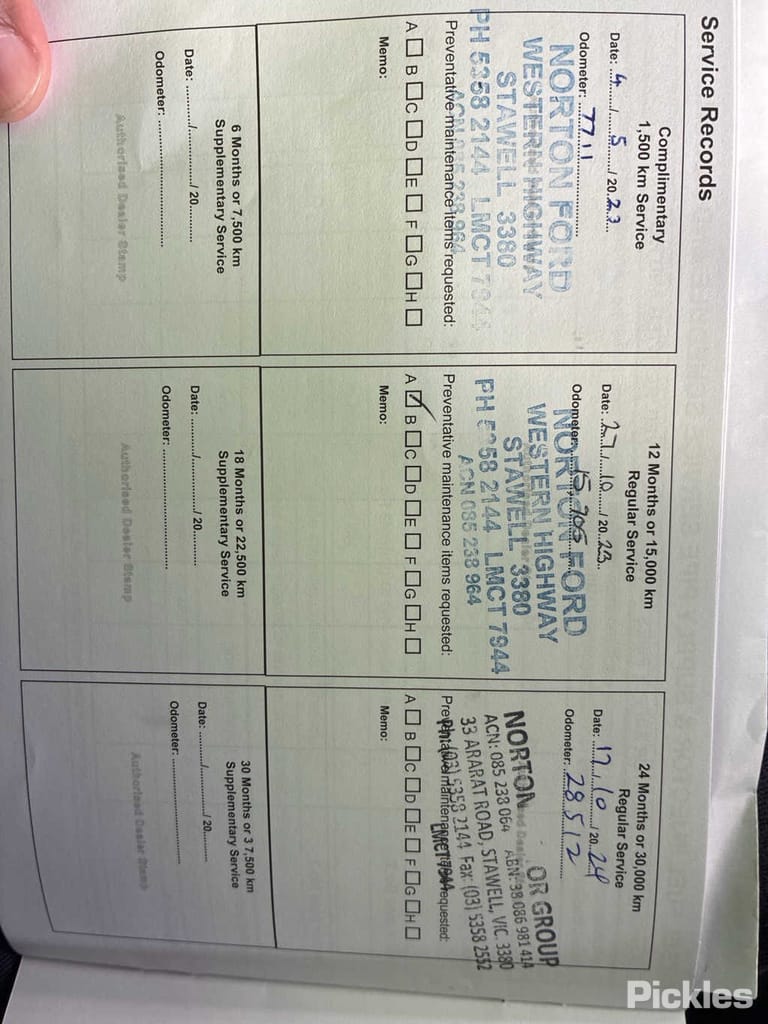 Service Records
Complimentary
1,500 km Service
Date: 4 / 5 / 2023
Odometer: 7711
NORTON FORD
WESTERN HIGHWAY
STAWELL 3380
PH 5358 2144 LMCT 7944
ACN 085 238 964
Preventative maintenance items requested:
A B C D E F G H
Memo:
6 Months or 7,500 km
Supplementary Service
Date: ........./........./ 20.........
Odometer: ..............................
Authorised Dealer Stamp
12 Months or 15,000 km
Regular Service
Date: 27 / 10 / 2023
Odometer: 15,705
NORTON FORD
WESTERN HIGHWAY
STAWELL 3380
PH 5358 2144 LMCT 7944
ACN 085 238 964
Preventative maintenance items requested:
A ✓ B C D E F G H
Memo:
18 Months or 22,500 km
Supplementary Service
Date: ........./........./ 20.........
Odometer: ..............................
Authorised Dealer Stamp
24 Months or 30,000 km
Regular Service
Date: 17 / 10 / 2024
Odometer: 28512
NORTON OR GROUP
ACN: 085 238 064 ABN: 38 086 981 414
33 ARARAT ROAD, STAWELL, VIC. 3380
Ph: (03) 5358 2144 Fax: (03) 5358 2552
LMCT 7944
Preventative maintenance items requested:
A B C D E F G H
Memo:
30 Months or 3 7,500 km
Supplementary Service
Date: ........./........./ 20.........
Odometer: ..............................
Authorised Dealer Stamp
Pickles